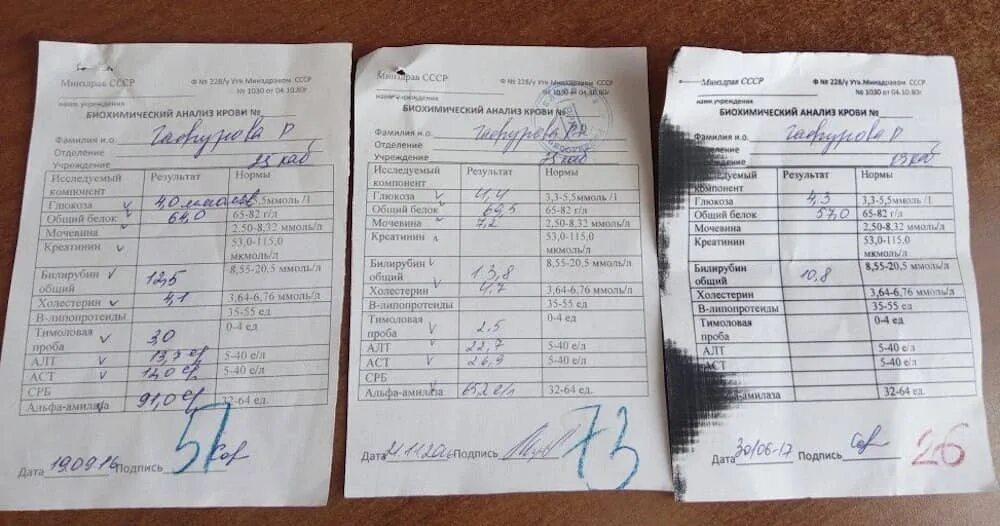 Минздрав СССР
Ф № 228/у Утв.Минздравом СССР
№ 1030 от 04.10.80г
наим.учреждения
БИОХИМИЧЕСКИЙ АНАЛИЗ КРОВИ №
Фамилия и.о.
Отделение
Учреждение 25 каб
Исследуемый компонент Результат Нормы
Глюкоза 4,0 5,5ммоль /1
Общий белок 64,0 65-82 г/л
Мочевина 2,50-8,32 ммоль/л
Креатинин 53,0-115,0 мкмоль/л
Билирубин общий 12,5 8,55-20,5 ммоль/л
Холестерин 4,1 3,64-6,76 ммоль/л
В-липопротеиды 35-55 ед
Тимоловая проба 3,0 0-4 ед
АЛТ 13,7 ед 5-40 е/л
АСТ 12,0 ед 5-40 е/л
СРБ
Альфа-амилаза 91,0 ед 32-64 ед.
51
Дата 19.09.16 Подпись
Минздрав СССР
Ф № 228/у Утв.Минздравом СССР
№ 1030 от 04.10.80г
наим.учреждения
БИОХИМИЧЕСКИЙ АНАЛИЗ КРОВИ №
Фамилия и.о.
Отделение
Учреждение 25 каб
Исследуемый компонент Результат Нормы
Глюкоза 4,4 3,3-5,5ммоль /1
Общий белок 69,5 65-82 г/л
Мочевина 7,2 2,50-8,32 ммоль/л
Креатинин 53,0-115,0 мкмоль/л
Билирубин общий 13,8 8,55-20,5 ммоль/л
Холестерин 4,7 3,64-6,76 ммоль/л
В-липопротеиды 35-55 ед
Тимоловая проба 2.5 0-4 ед
АЛТ 22,7 5-40 е/л
АСТ 26,9 5-40 е/л
СРБ
Альфа-амилаза 65,2 е/л 32-64 ед.
73
Дата Подпись
Минздрав СССР
Ф № 228/у Утв.Минздравом СССР
№ 1030 от 04.10.80г
наим.учреждения
БИОХИМИЧЕСКИЙ АНАЛИЗ КРОВИ №
Фамилия и.о.
Отделение
Учреждение 25 каб
Исследуемый компонент Результат Нормы
Глюкоза 4,3 3,3-5,5ммоль /1
Общий белок 57,0 65-82 г/л
Мочевина 2,50-8,32 ммоль/л
Креатинин 53,0-115,0 мкмоль/л
Билирубин общий 10,8 8,55-20,5 ммоль/л
Холестерин 3,64-6,76 ммоль/л
В-липопротеиды 35-55 ед
Тимоловая проба 0-4 ед
АЛТ 5-40 е/л
АСТ 5-40 е/л
32-64 ед.
26
Дата 30/06-17 Подпись